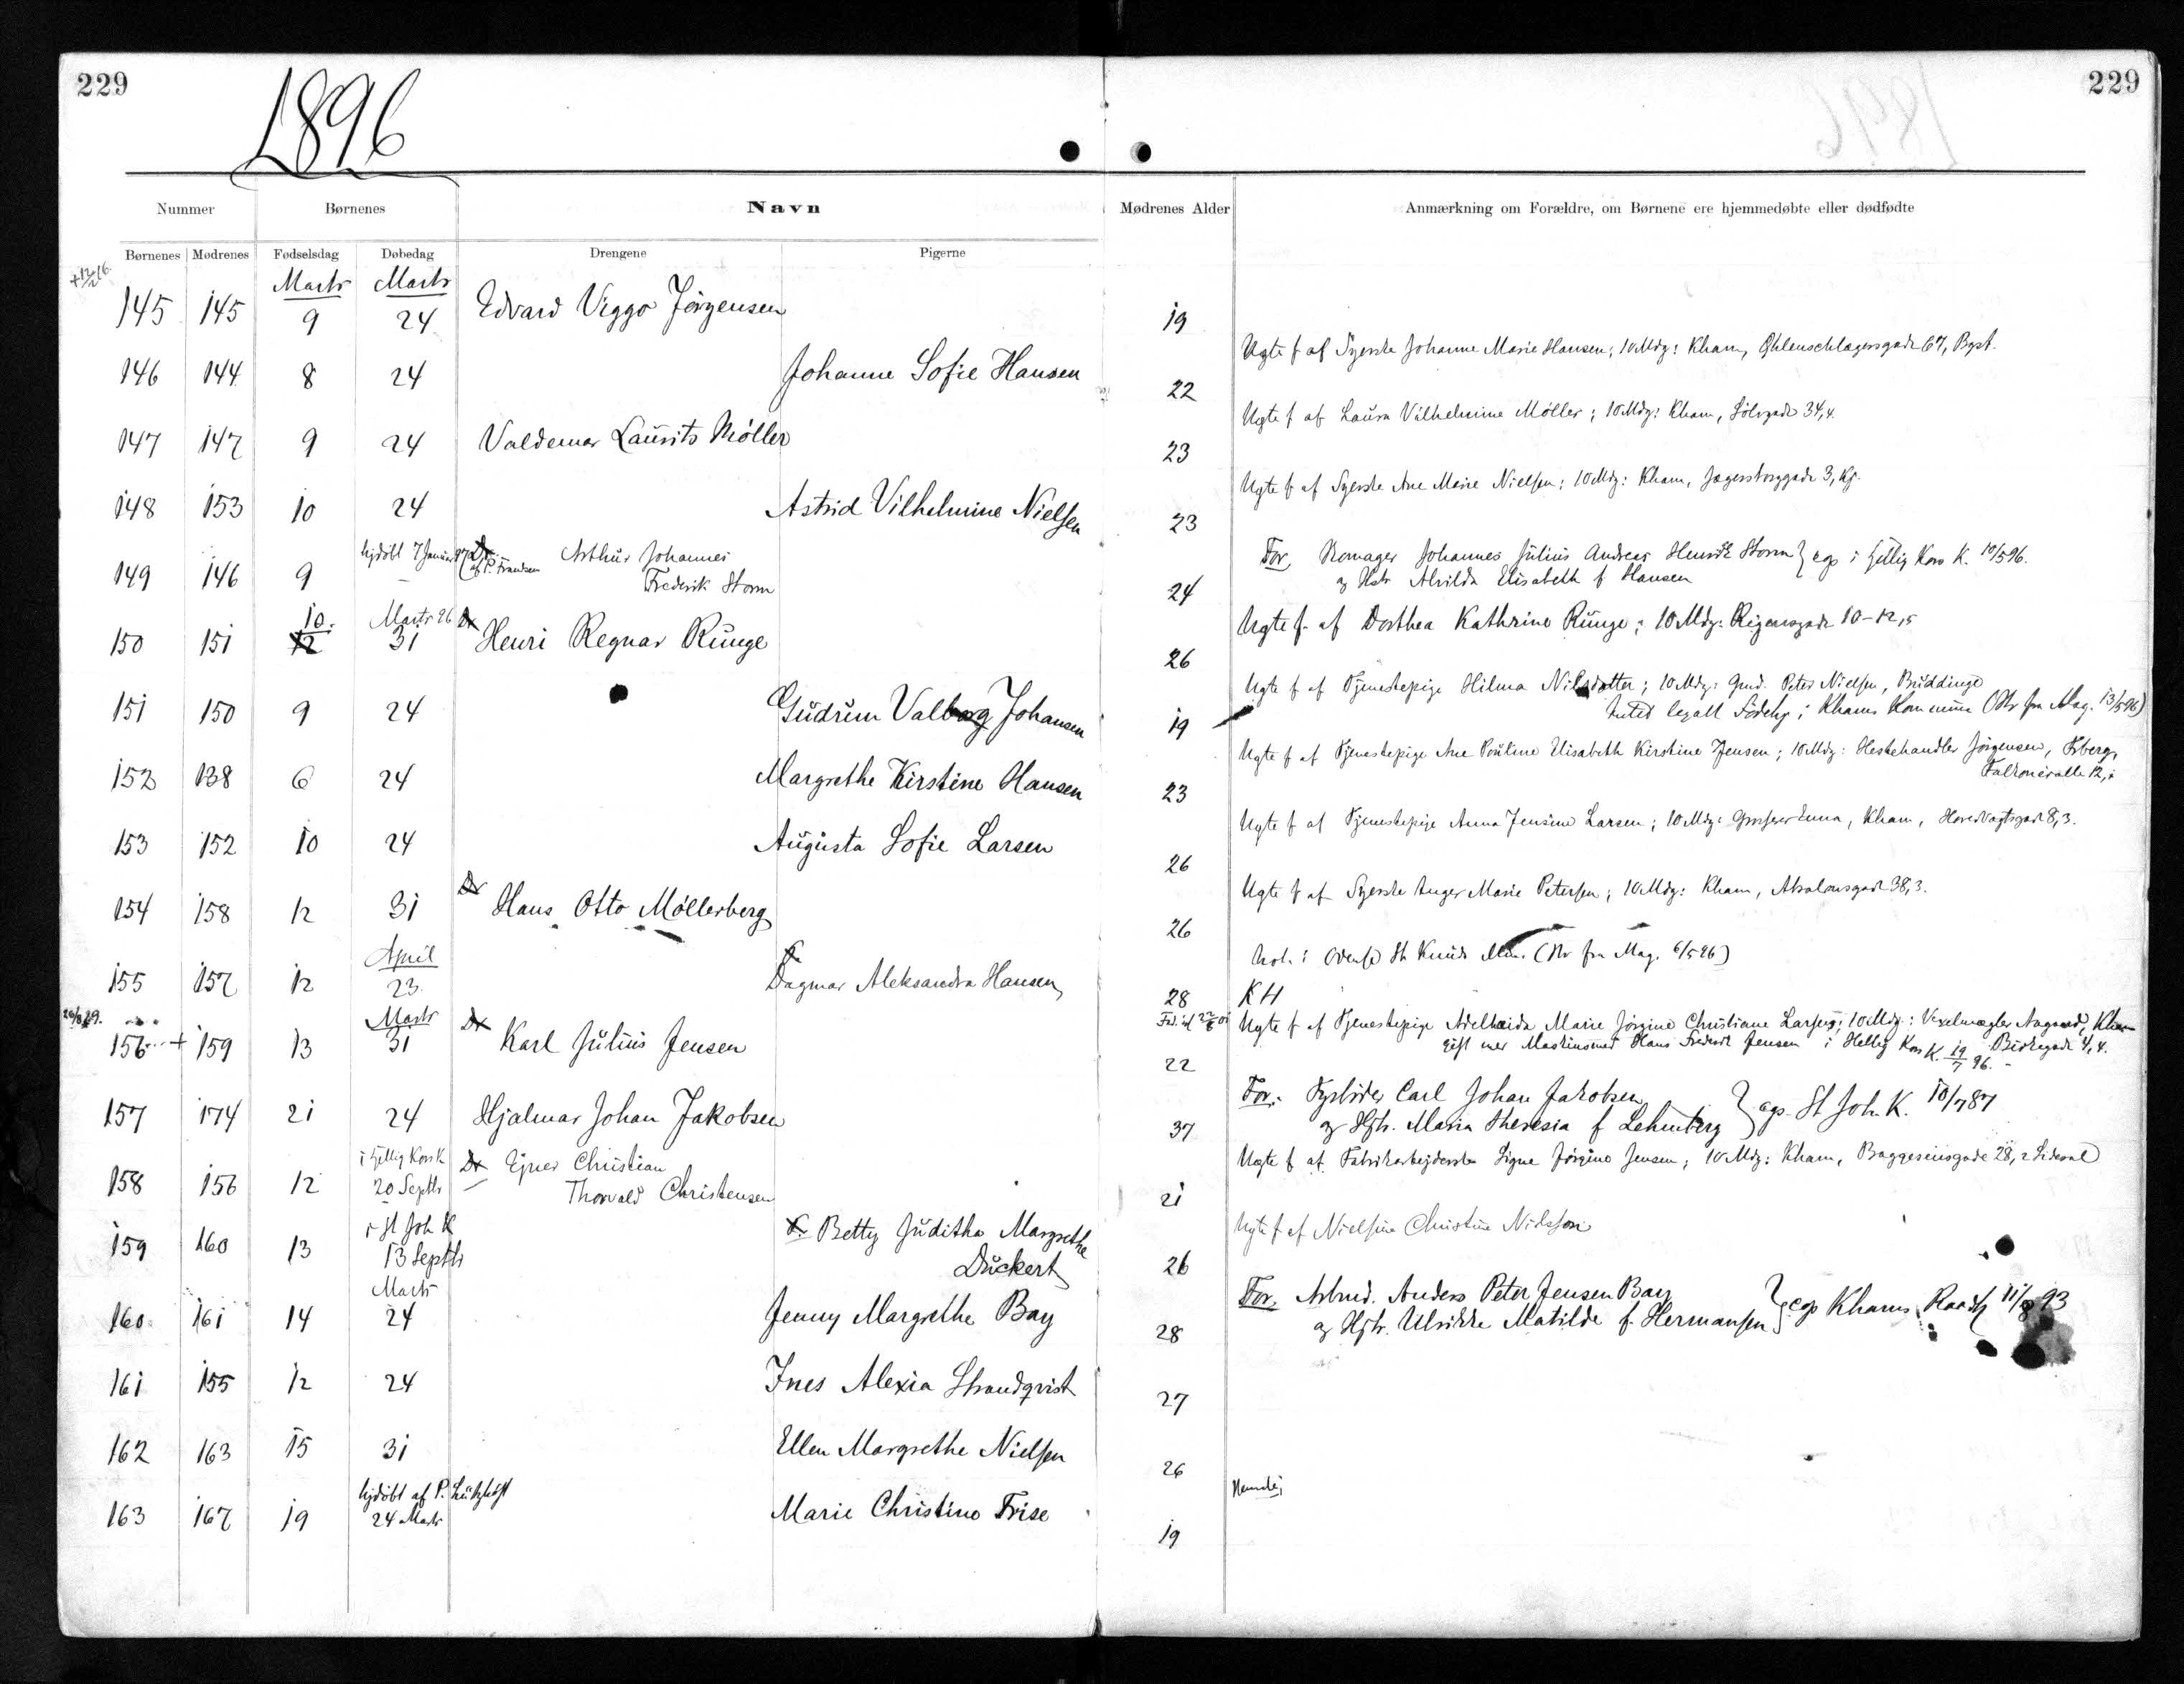 229
229
1896
Nummer
Børnenes
Navn
Mødrenes Alder
Anmærkning om Forældre, om Børnene ere hjemmedøbte eller dødfødte
Børnenes Mødrenes Fødselsdag Døbedag Drengene Pigerne
Marts Marts
145 145 9 24 Edvard Viggo Jörgensen 19
Ugte f af Syerske Johanne Marie Hansen; 10 Mdg: Kham, Öhlenschlægersgade 67, Bgst.
146 144 8 24 Johanne Sofie Hansen 22
Ugte f af Laura Vilhelmine Möller; 10 Mdg: Kham, Sölvgade 34,4.
147 147 9 24 Valdemar Laurits Möller 23
Ugte f af Syerske Ane Marie Nielsen; 10 Mdg: Kham, Jægersborggade 3, Kj.
148 153 10 24 Astrid Vilhelmine Nielsen 23
hjdöbt 7 Januar 97 af P. Frandsen
149 146 9 Arthur Johannes Frederik Storm 24
For. Johannes Julius Andreas Henrik Storm
og Hstr Alvilda Elisabeth f. Hansen } egv i Hellig Kors K. 10/5 96.
10. Marts 26
150 151 12 31 Henri Regnar Runge 26
Ugte f. af Dorthea Kathrine Runge; 10 Mdg: Rigensgade 10-12,5
151 150 9 24 Gudrun Valborg Johansen 19
Ugte f af Tjenestepige Hilma Nilsdotter; 10 Mdg: Gmd. Peter Nielsen, Buddinge
Intet legalt Födehj i Khavns Kommune (Skr fra Mag. 13/5 96)
152 138 6 24 Margrethe Kirstine Hansen 23
Ugte f af Tjenestepige Ane Pouline Elisabeth Kirstine Jensen; 10 Mdg: Hestehandler Jörgensen, Frberg,
Falkoneralle 12, i
153 152 10 24 Augusta Sofie Larsen 26
Ugte f af Tjenestepige Anna Jensine Larsen; 10 Mdg: Grosserer, Kham, Hovedvagtsgade 8,3.
154 158 12 31 Hans Otto Möllerberg 26
Ugte f af Syerske Inger Marie Petersen; 10 Mdg: Kham, Absalonsgade 38,3.
April
155 157 12 23. Dagmar Aleksandra Hansen 28
Not. i Odense St Knuds Min. (Skr fra Mag. 6/5 96)
KH
26/8 29.
Marts
156 + 159 13 31 Karl Julius Jensen 22
Ugte f af Tjenestepige Adelheida Marie Jörgine Christiane Larsen; 10 Mdg: Vexelmægler Aagaard, Kham
Birkegade 4,4.
gift med Maskinsmed Hans Frederik Jensen i Hellig Kors K. 19/7 96.
157 174 21 24 Hjalmar Johan Jakobsen 37
For. Carl Johan Jakobsen
og Hstr. Maria Theresia f Lehmberg } egv. St Joh. K. 10/7 87
i Hellig Kors K
158 156 12 20 Septbr Ejner Christian Thorvald Christensen 21
Ugte f af Fabrikarbejderske Signe Jörgine Jensen; 10 Mdg: Kham, Baggesensgade 28, 2 Sidesal
i St Joh K
159 160 13 13 Septbr Betty Juditha Margrethe Dückert 26
Ugte f af Nielsine Christine Nielsson
Marts
160 161 14 24 Jenny Margrethe Bay 28
For. Arbmd. Anders Peter Jensen Bay
og Hstr. Ulrikke Matilde f. Hermansen } egv Khavns Raadh 11/8 93
161 155 12 24 Ines Alexia Strandqvist 27
162 163 15 31 Ellen Margrethe Nielsen 26
hjdöbt af P.
163 167 19 24 Marts Marie Christine Frise 19